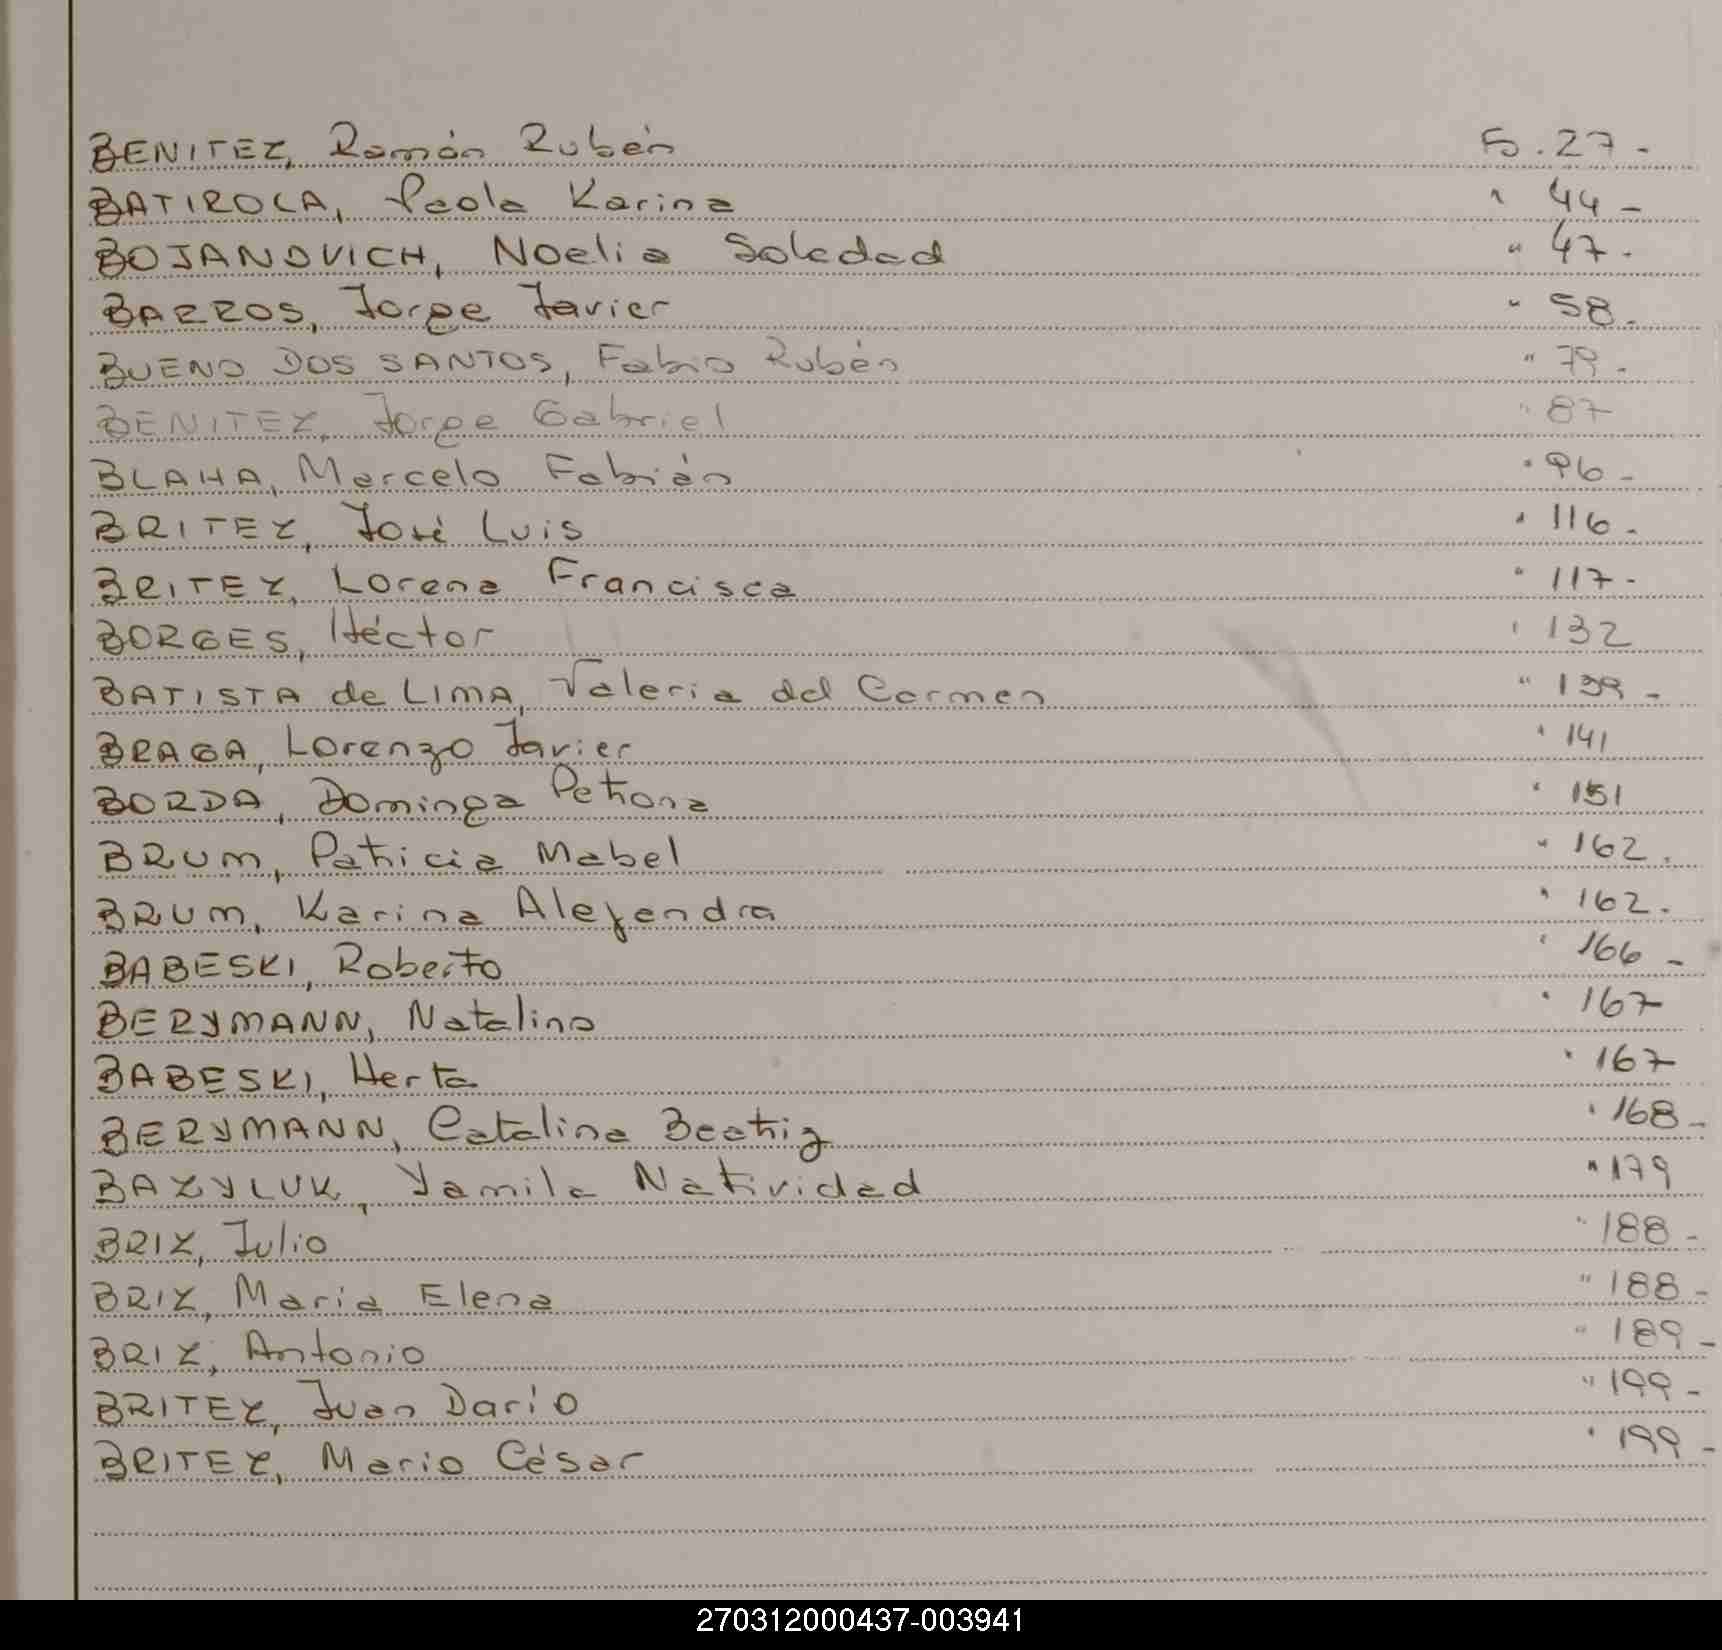 BENITEZ, Ramón Rubén Fo. 27 -
BATIROLA, Paola Karina " 44 -
BOJANOVICH, Noelia Soledad " 47 -
BARROS, Jorge Javier " 58 -
BUENO DOS SANTOS, Fabio Rubén " 79 -
BENITEZ, Jorge Gabriel " 87
BLAHA, Marcelo Fabián " 96 -
BRITEZ, José Luis " 116 -
BRITEZ, Lorena Francisca " 117 -
BORGES, Héctor " 132
BATISTA de LIMA, Valeria del Carmen " 139 -
BRAGA, Lorenzo Javier " 141
BORDA, Dominga Petrona " 151
BRUM, Patricia Mabel " 162 .
BRUM, Karina Alejandra " 162 .
BABESKI, Roberto " 166 -
BERYMANN, Natalino " 167
BABESKI, Herta " 167
BERYMANN, Catalina Beatriz " 168 -
BAZYLUK, Yamila Natividad " 179
BRIZ, Julio " 188 -
BRIZ, Maria Elena " 188 -
BRIZ, Antonio " 189 -
BRITEZ, Juan Darío " 199 -
BRITEZ, Mario César " 199 -
270312000437-003941